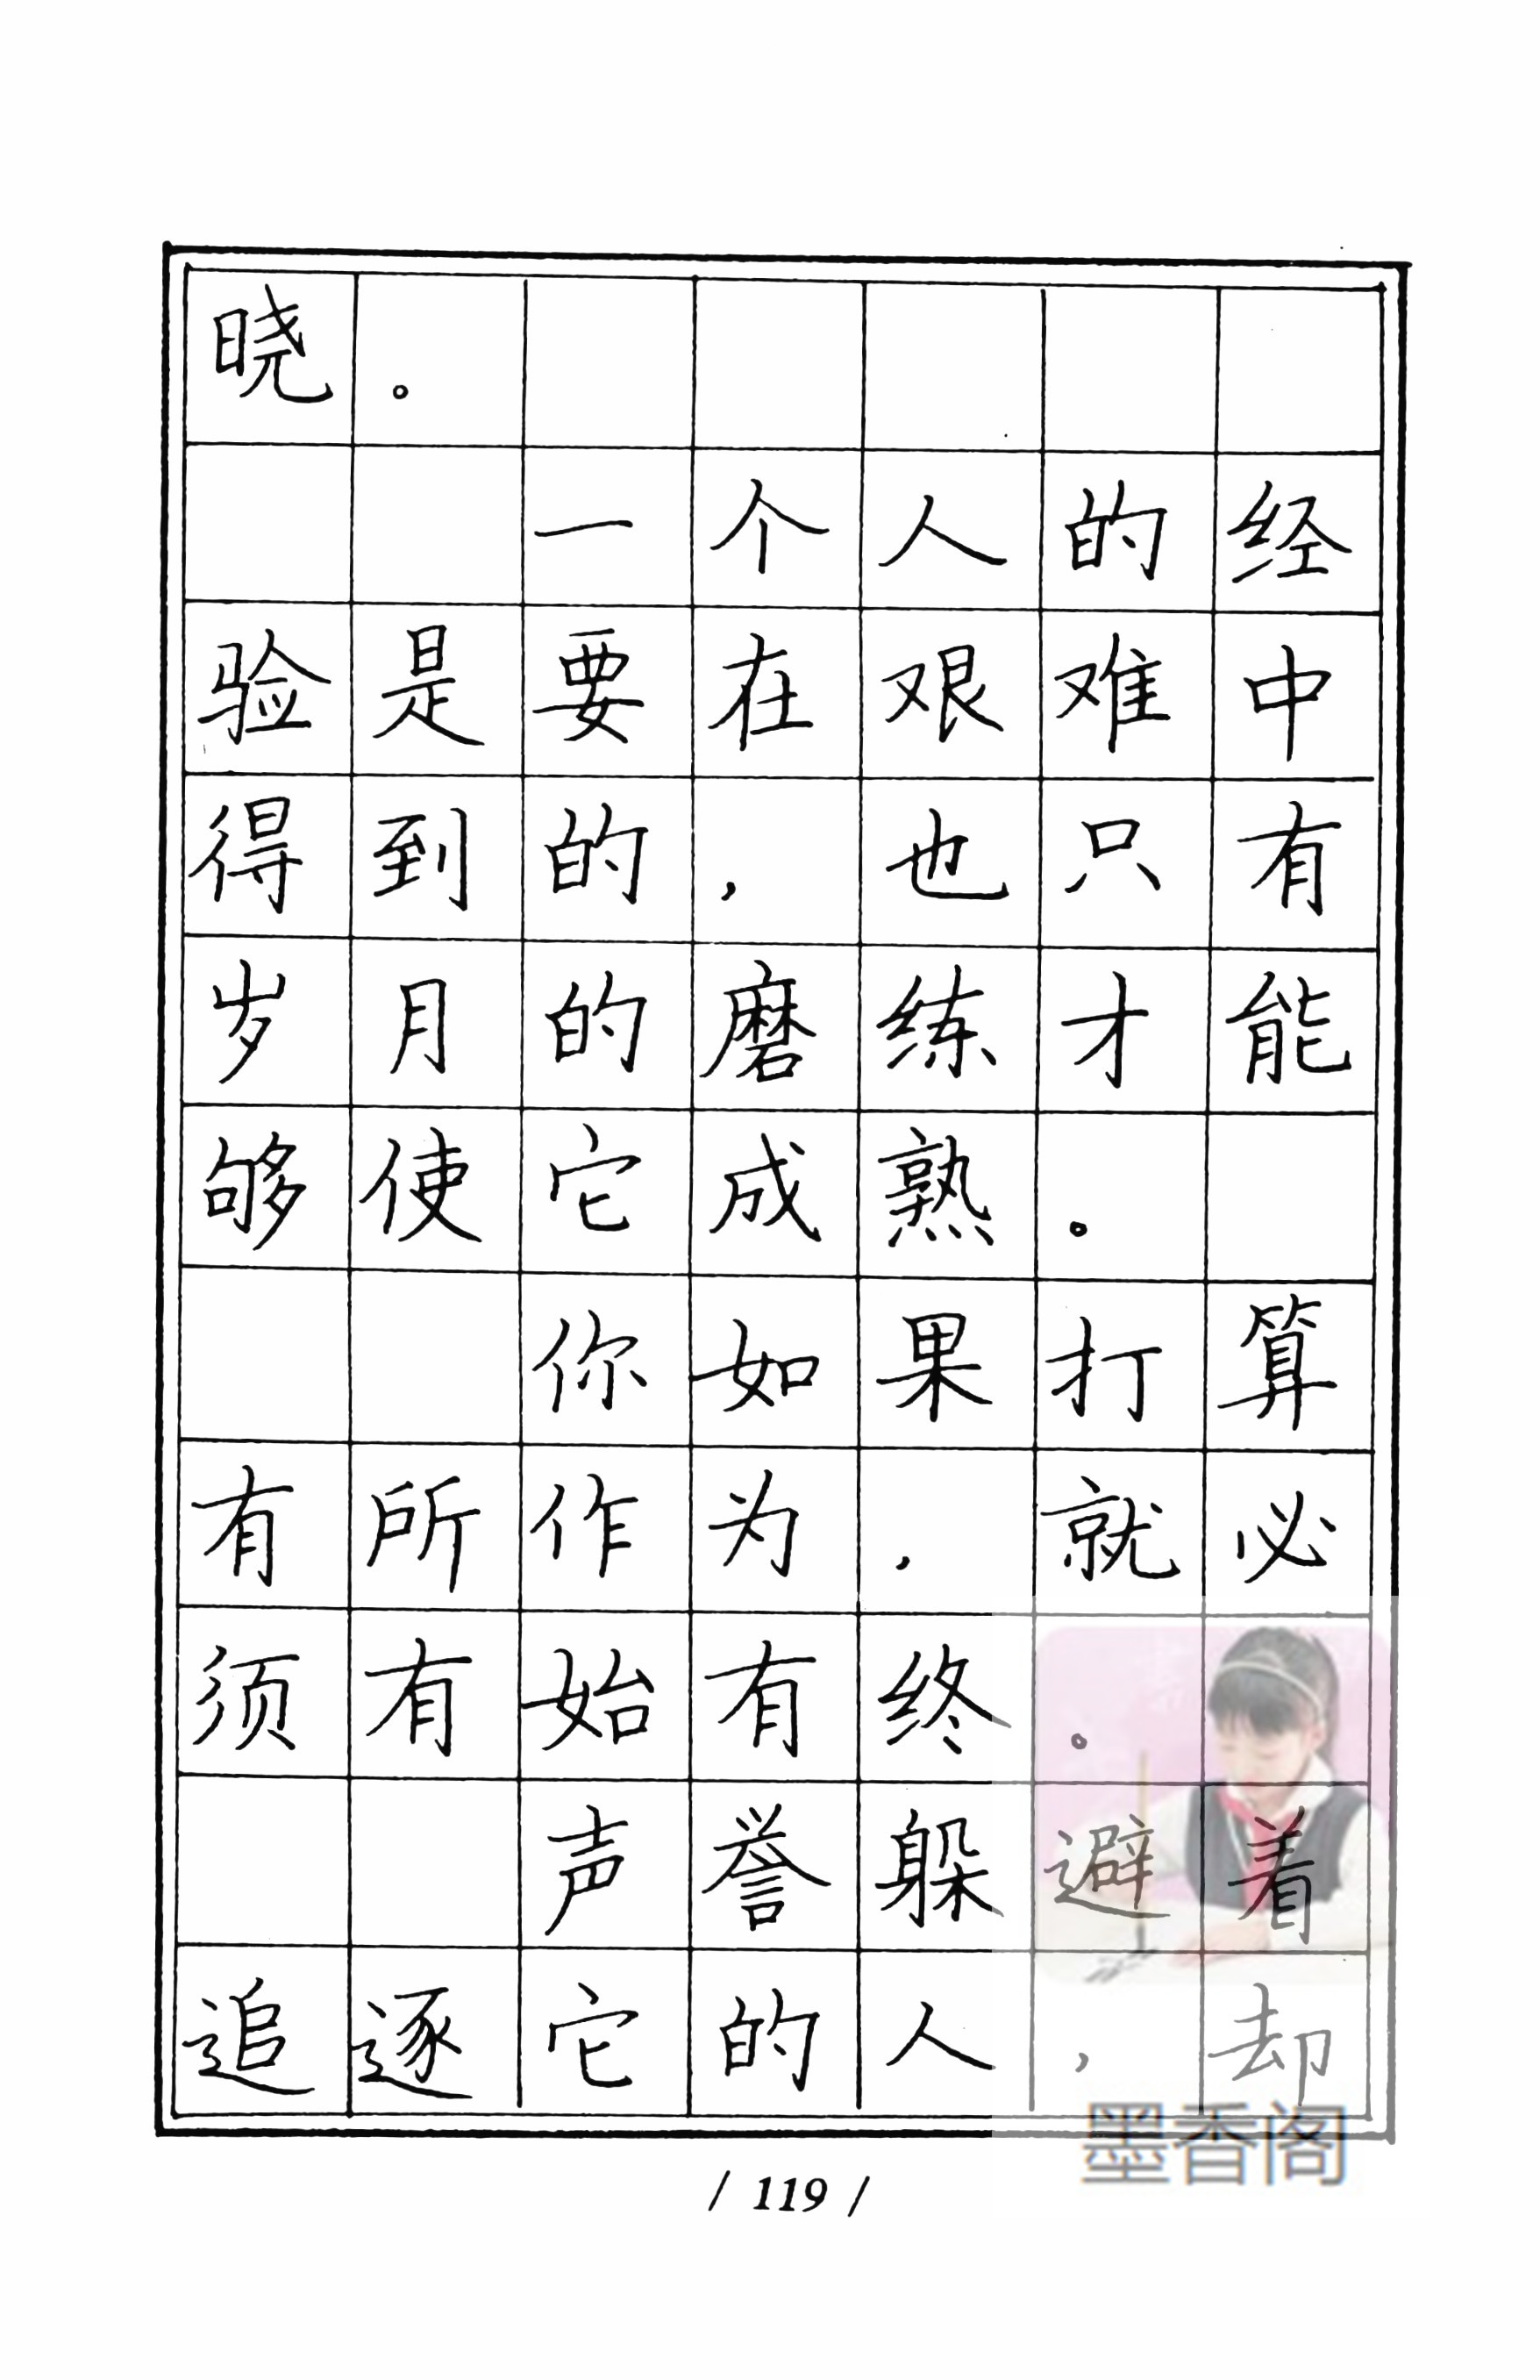 晓。
一个人的经
验是要在艰难中
得到的，也只有
岁月的磨练才能
够使它成熟。
你如果打算
有所作为，就必
须有始有终。
声誉躲避着
追逐它的人，却
墨香阁
/ 119 /